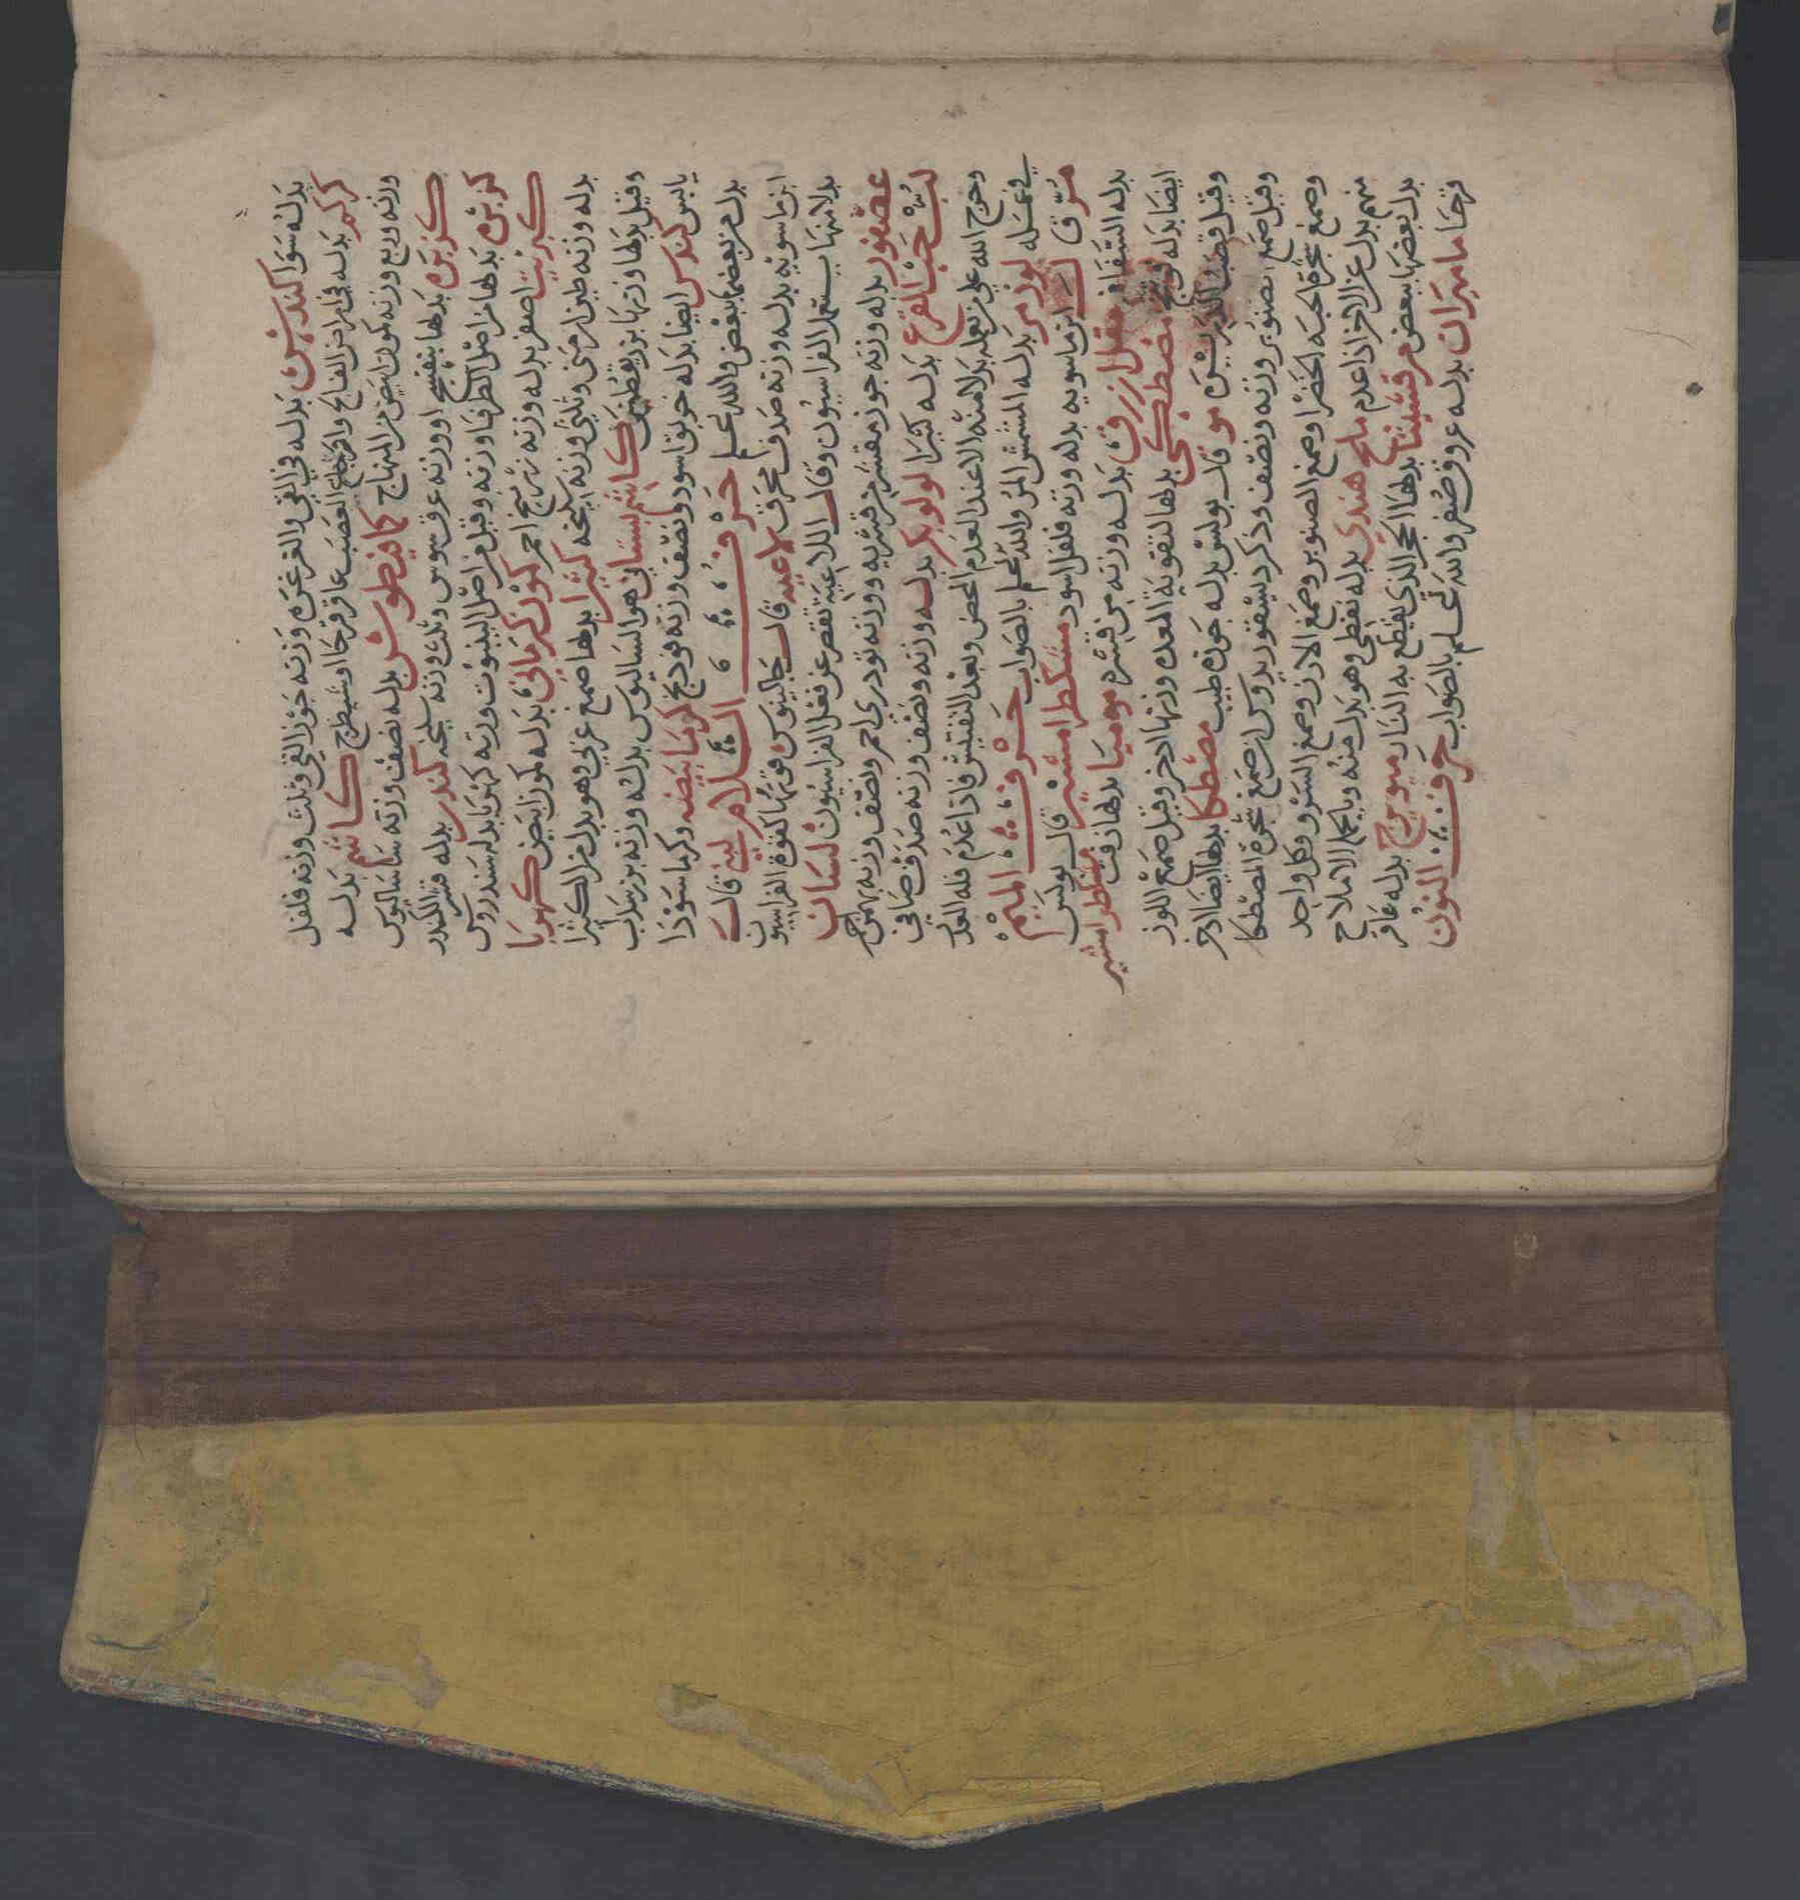 بدله سوا كندس بدله في القي والغرغرة وزنه جوز القي وثلث وزنه فلفل
كركم بدله في امراض الفالج واوجاع العصب عاقرقرحا وشيطرج كاشم بدله
وزنه وربع وزنه كمون ابيض من المنهاج كمافيطوس بدله نصف وزنه ساساليوس
كزبره بدلها بنفسج او وزنه عرق سوس وثلث وزنه سليخه كندر بدله قشر الكندر
كزبره بدلها من اصل الطرفا وزنه وقيل من اصل الينبوت وزنه كهربا بدله سندروس
كبريت اصفر بدله وزنه زرنيخ احمر كمون كرماني بدله كمون ابيض كهربا
بدله وزنه طين ارمني وثلثي وزنه سليخه كثيرا بدلها صمغ عربي وهو بدل من الكثيرا
وقيل بدلها وزنها بزر يقطين كاشم بستاني هو السساليوس بدله وزنه بزر سداب
يابس كندس ايضا بدله خربق اسود ونصف وزنه فودنج كرما بيضه وكرما سودا
بدل من بعضها بعض والله اعلم حرف اللام لبن قالت
ابن ماسويه بدله وزنه صدف محرق لاعيه قال جالينوس قوتها كقوة الفراسيون
بدلا منها يستعمل الفراسيون وقال اللاعية تقصر عن فعل الفراسيون لسان
عصفور بدله وزنه جوز مقشر من قشريه ووزنه تودري احمر ونصف وزنه بهمن احمر
لب حب القرع بدله كثيرا لولو بكر بدله وزنه ونصف وزنه صدف صافي
وحرج الله علي من يعمله بدلا منه الا عند العدم المحض وبعد التفتيش فاذا عدم فله العدل
في عمله لوز مر بدله المشمش المر والله اعلم بالصواب حرف الميم
مرق قال ابن ماسويه بدله وزنه فلفل اسود مشكطرامشير قال بولس
بدله الشفاف مقل ازرق بدله وزنه من قشره موميا بدلها زفت مشكطرامشير
ايضا بدله فوتنج مصطكي بدلها لتقوية المعده وزنها اذخر وقيل صمغ اللوز
وقيل قصب الذريره موقال بولس بدله جوزه طيب مصطكا بدلها ايضا اذخر
وقيل صمغ الصنوبر وزنه ونصف وذكر ديسقوريدوس ان صمغ شجرة المصطكا
وصمغ شجرة الحبه الخضرا وصمغ الصنوبر وصمغ الارز وصمغ السرو وكل واحد
منهم بدل عن الاخر اذا عدم ملح هندي بدله نفطي وهو بدل منه وبالجمله الاملاح
بدل بعضها ببعض مرقشيثا بدلها الحجر الذي يقطع به النار ميويزج بدله عاقر
قرحا ماميران بدله عروق صفر والله اعلم بالصواب حرف النون